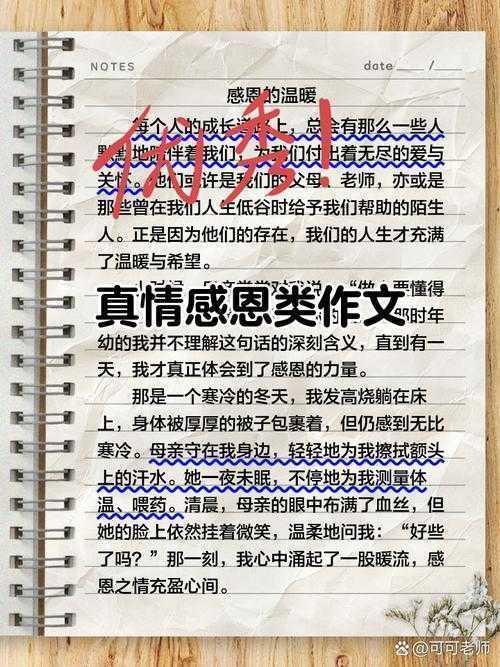 NOTES
date ___ / ___
感恩的温暖
每个人的成长道路上，总会有那么一些人
默默地陪伴着我们，为我们付出着无尽的爱与
关怀。他们或许是我们的父母、老师，亦或是
那些曾在我们人生低谷时给予我们帮助的陌生
人。正是因为他们的存在，我们的人生才充满
了温暖与希望。
优秀！
要懂得
真情感恩类作文
那时年
幼的我并不理解这句话的深刻含义，直到有一
天，我才真正体会到了感恩的力量。
那是一个寒冷的冬天，我发高烧躺在床
上，身体被厚厚的被子包裹着，但仍感到无比
寒冷。母亲守在我身边，轻轻地为我擦拭额头
上的汗水。她一夜未眠，不停地为我测量体
温、喂药。清晨，母亲的眼中布满了血丝，但
她的脸上依然挂着微笑，温柔地问我：“好些
了吗？”那一刻，我心中涌起了一股暖流，感
恩之情充盈心间。
@可可老师